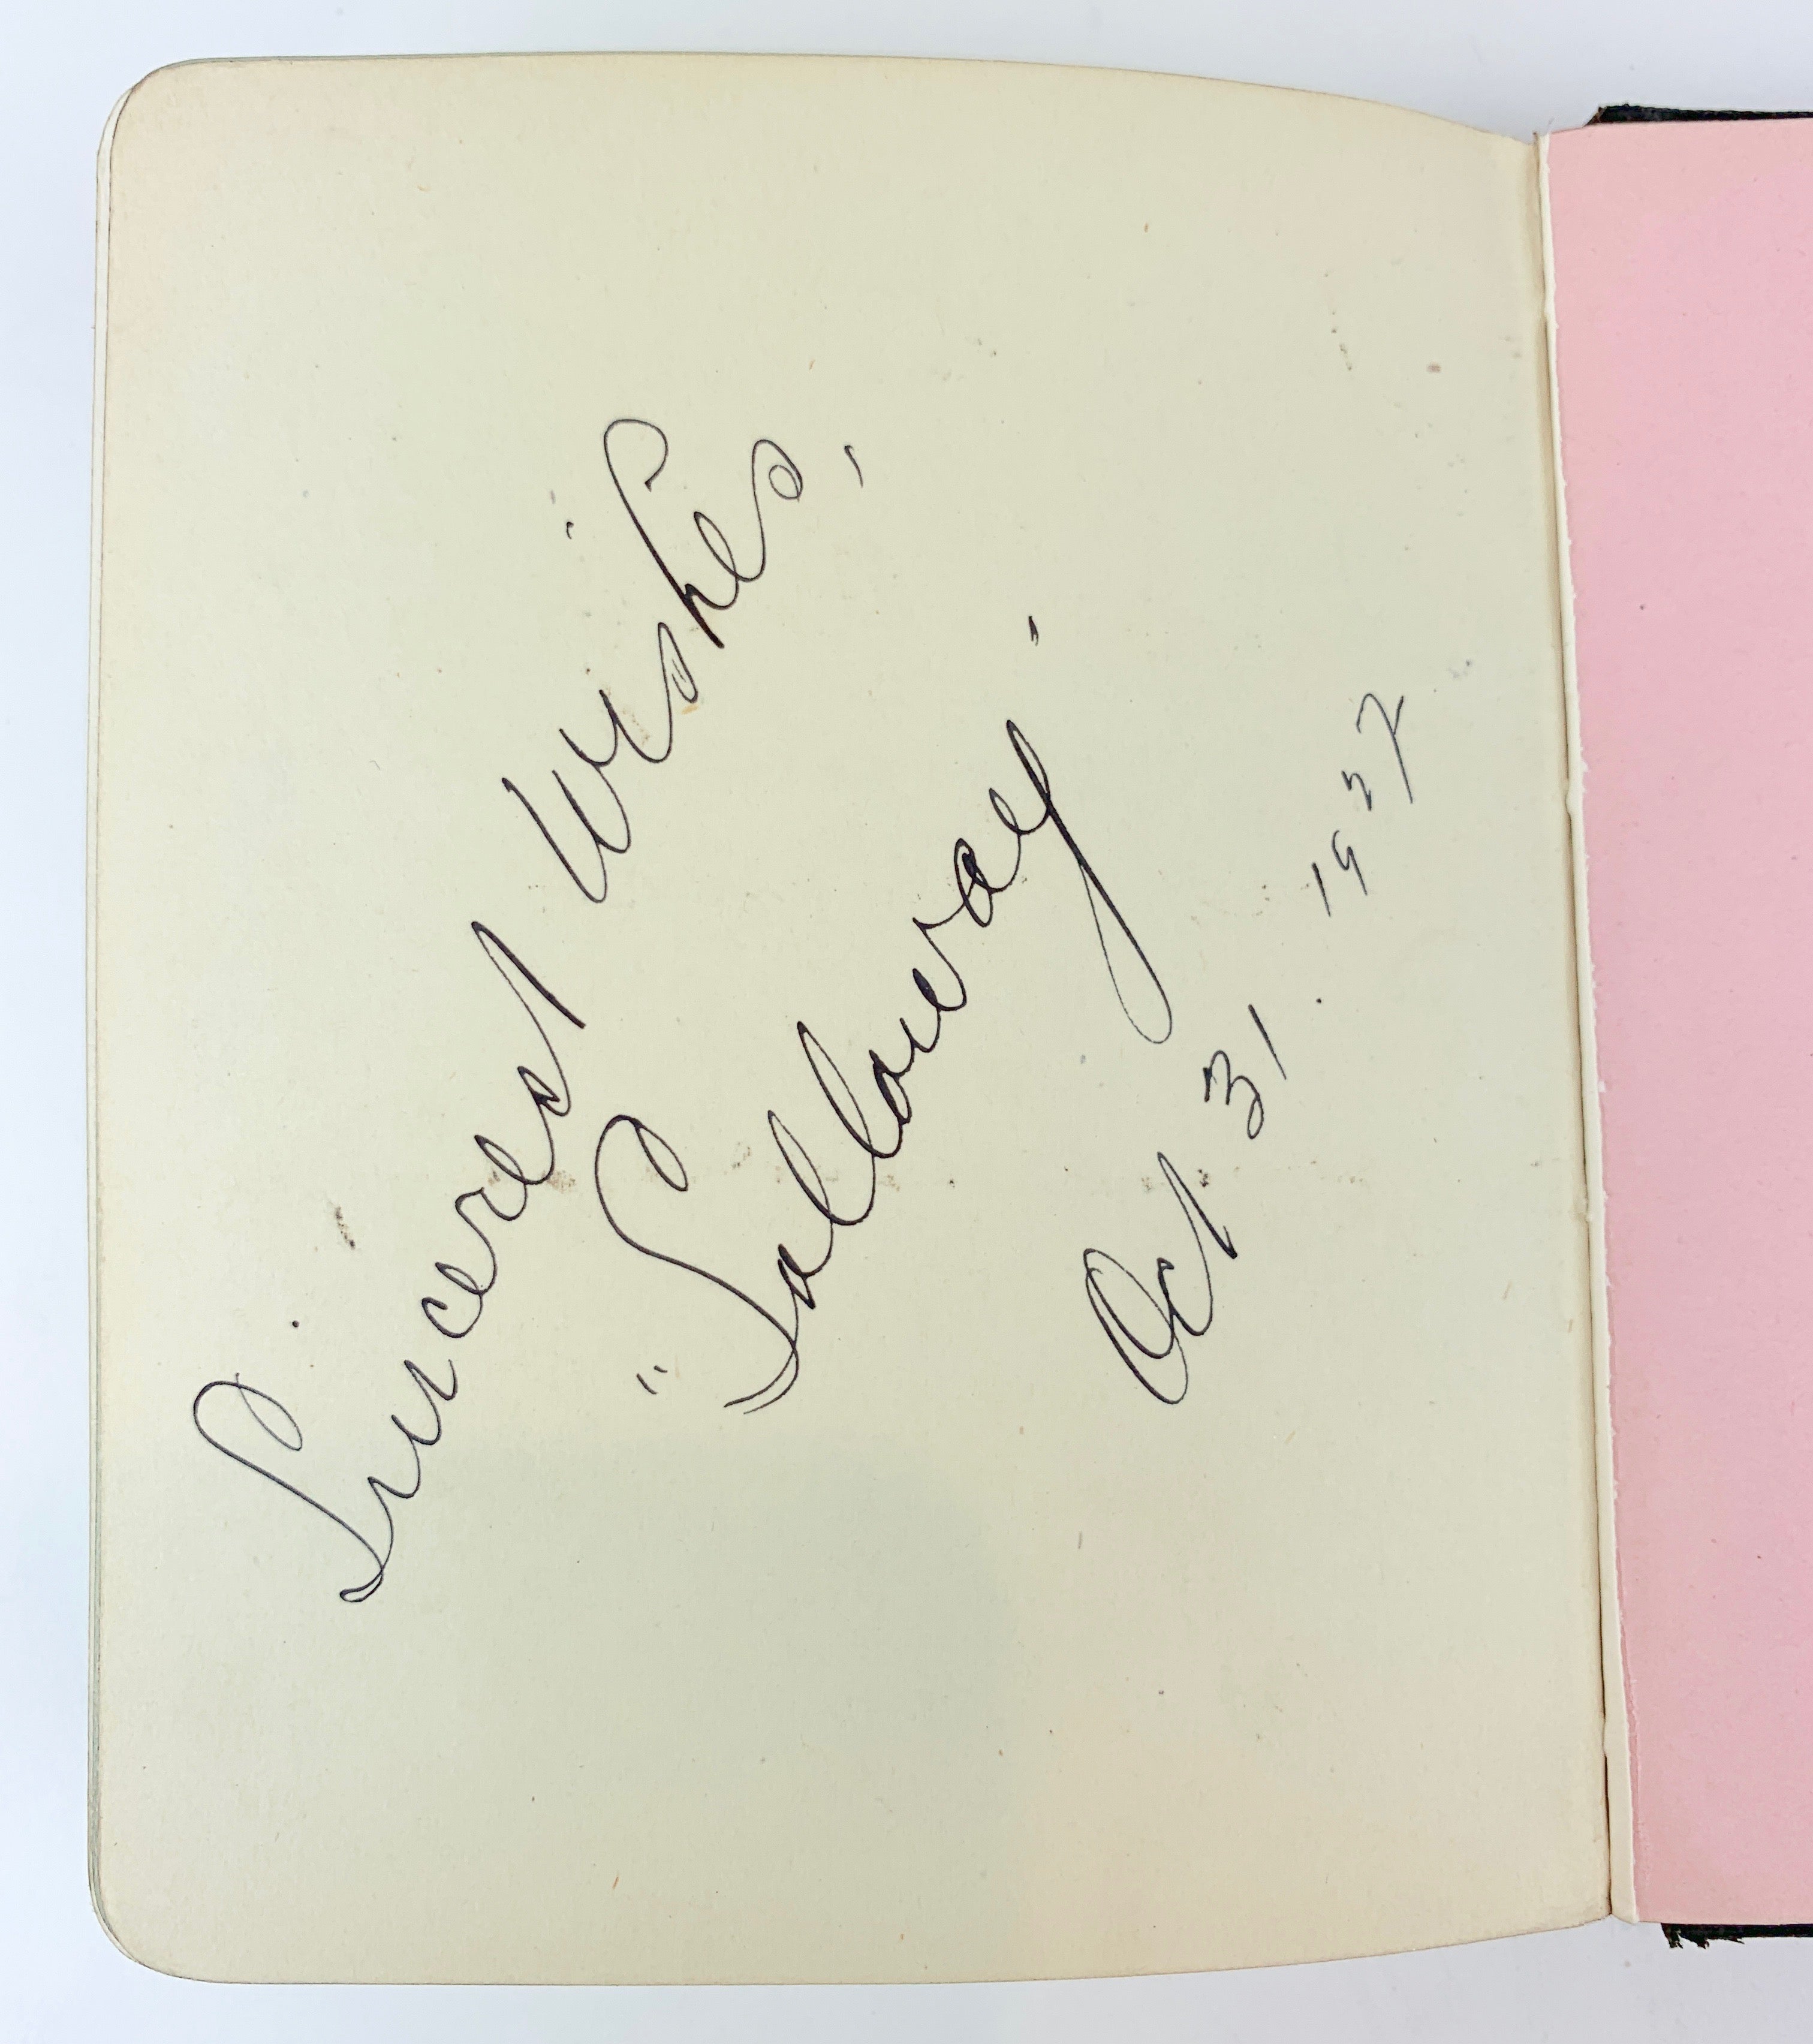 Sincerest Wishes,
"Salloway"
Oct. 31. 1937